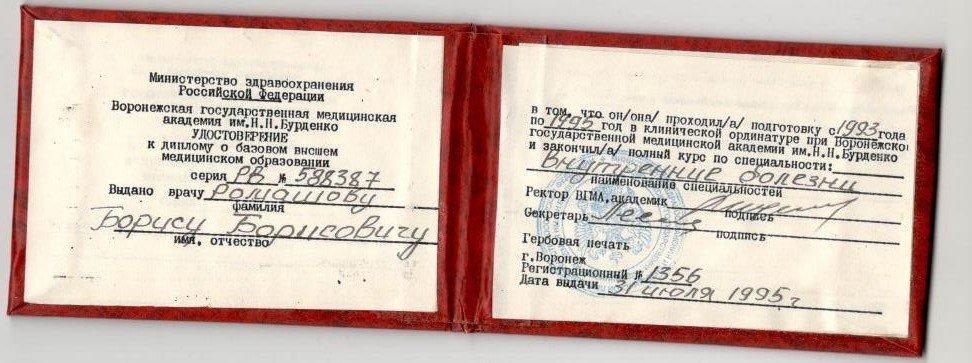 Министерство здравоохранения
Российской Федерации
Воронежская государственная медицинская
академия им.Н.Н.Бурденко
УДОСТОВЕРЕНИЕ
к диплому о базовом высшем
медицинском образовании
серия РВ № 588387
Выдано врачу Ромашову
фамилия
Борису Борисовичу
имя, отчество
в том, что он/она/ проходил/а/ подготовку с 1993 года
по 1995 год в клинической ординатуре при Воронежской
государственной медицинской академии им.Н.Н.Бурденко
и закончил/а/ полный курс по специальности:
Внутренние болезни
наименование специальностей
Ректор ВГМА, академик
подпись
Секретарь
подпись
Гербовая печать
г.Воронеж
Регистрационный № 1356
Дата выдачи 31 июля 1995 г